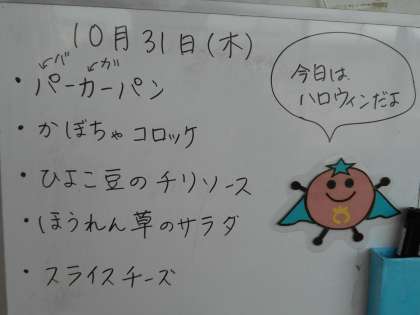 10月31日(木)
↙バ ↙ガ
・パーカーパン
・かぼちゃコロッケ
・ひよこ豆のチリソース
・ほうれん草のサラダ
・スライスチーズ
今日は
ハロウィンだよ